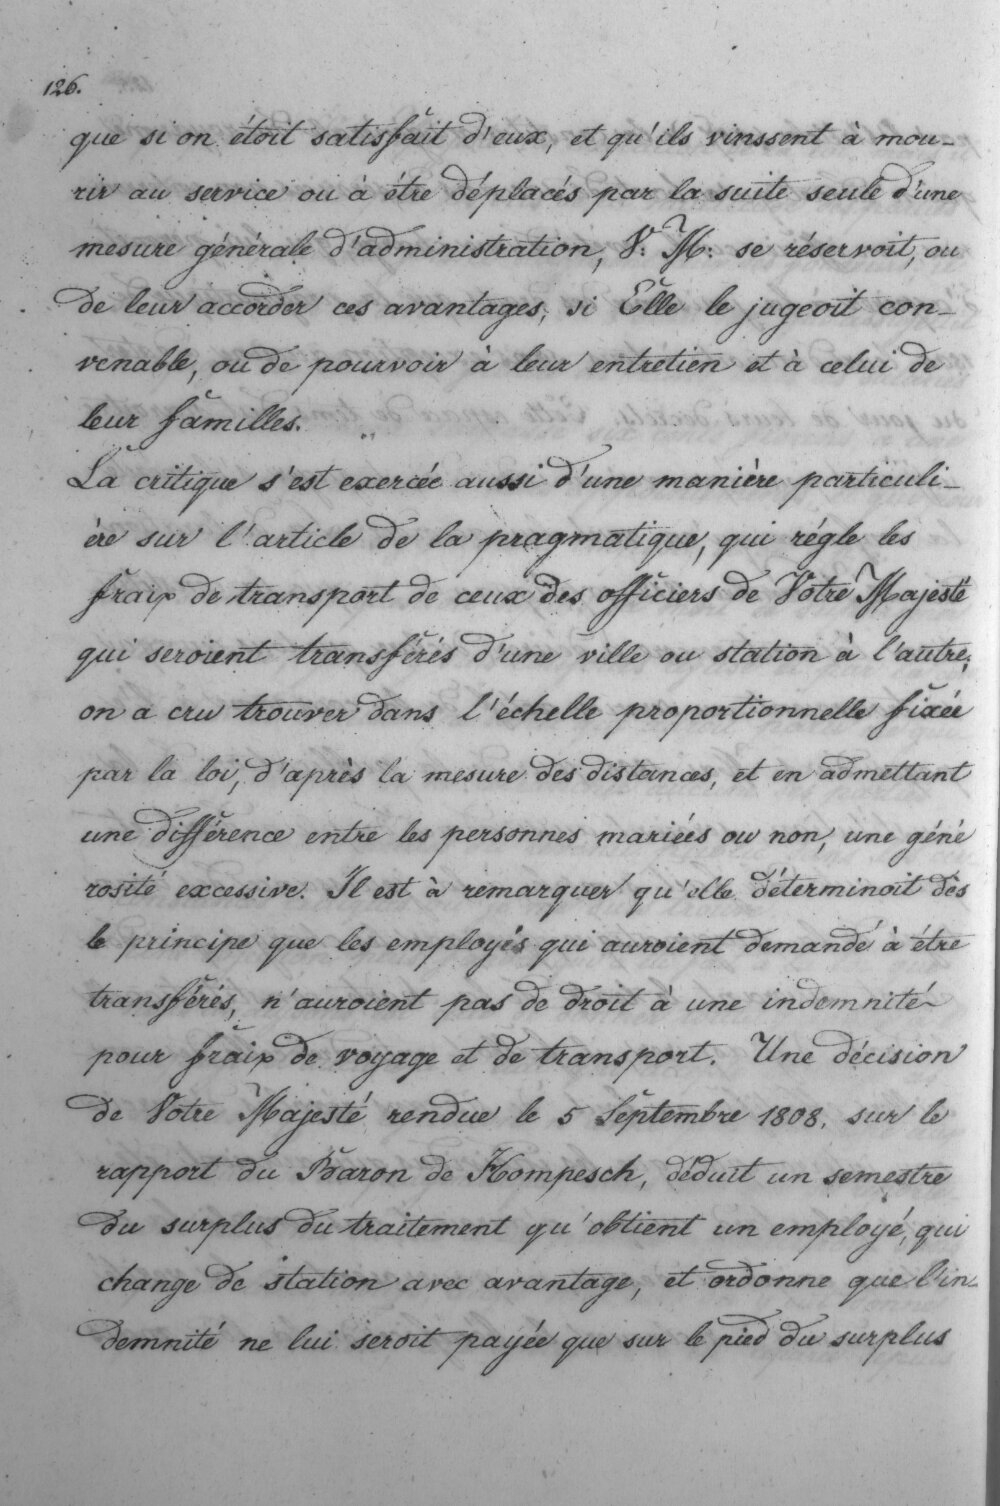 126.
que si on étoit satisfait d'eux, et qu'ils vinssent à mou-
rir au service ou à étre déplacés par la suite seule d'une
mesure générale d'administration, V. M: se réservoit, ou
de leur accorder ces avantages, si Elle le jugeoit con-
venable, ou de pourvoir à leur entretien et à celui de
leur familles.
La critique s'est exercée aussi d'une manière particuli-
ère sur l'article de la pragmatique, qui régle les
fraix de transport de ceux des officiers de Votre Majesté
qui seroient transférés d'une ville ou station à l'autre;
on a cru trouver dans l'échelle proportionnelle fixée
par la loi, d'après la mesure des distances, et en admettant
une différence entre les personnes mariées ou non, une géné
rosité excessive. Il est à remarquer qu'elle déterminoit dès
le principe que les employés qui auroient demandé à étre
transférés, n'auroient pas de droit à une indemnité
pour fraix de voyage et de transport. Une décision
de Votre Majesté rendue le 5 Septembre 1808. sur le
rapport du Baron de Hompesch, déduit un semestre
du surplus du traitement qu'obtient un employé, qui
change de station avec avantage, et ordonne que l'in-
demnité ne lui seroit payée que sur le pied du surplus